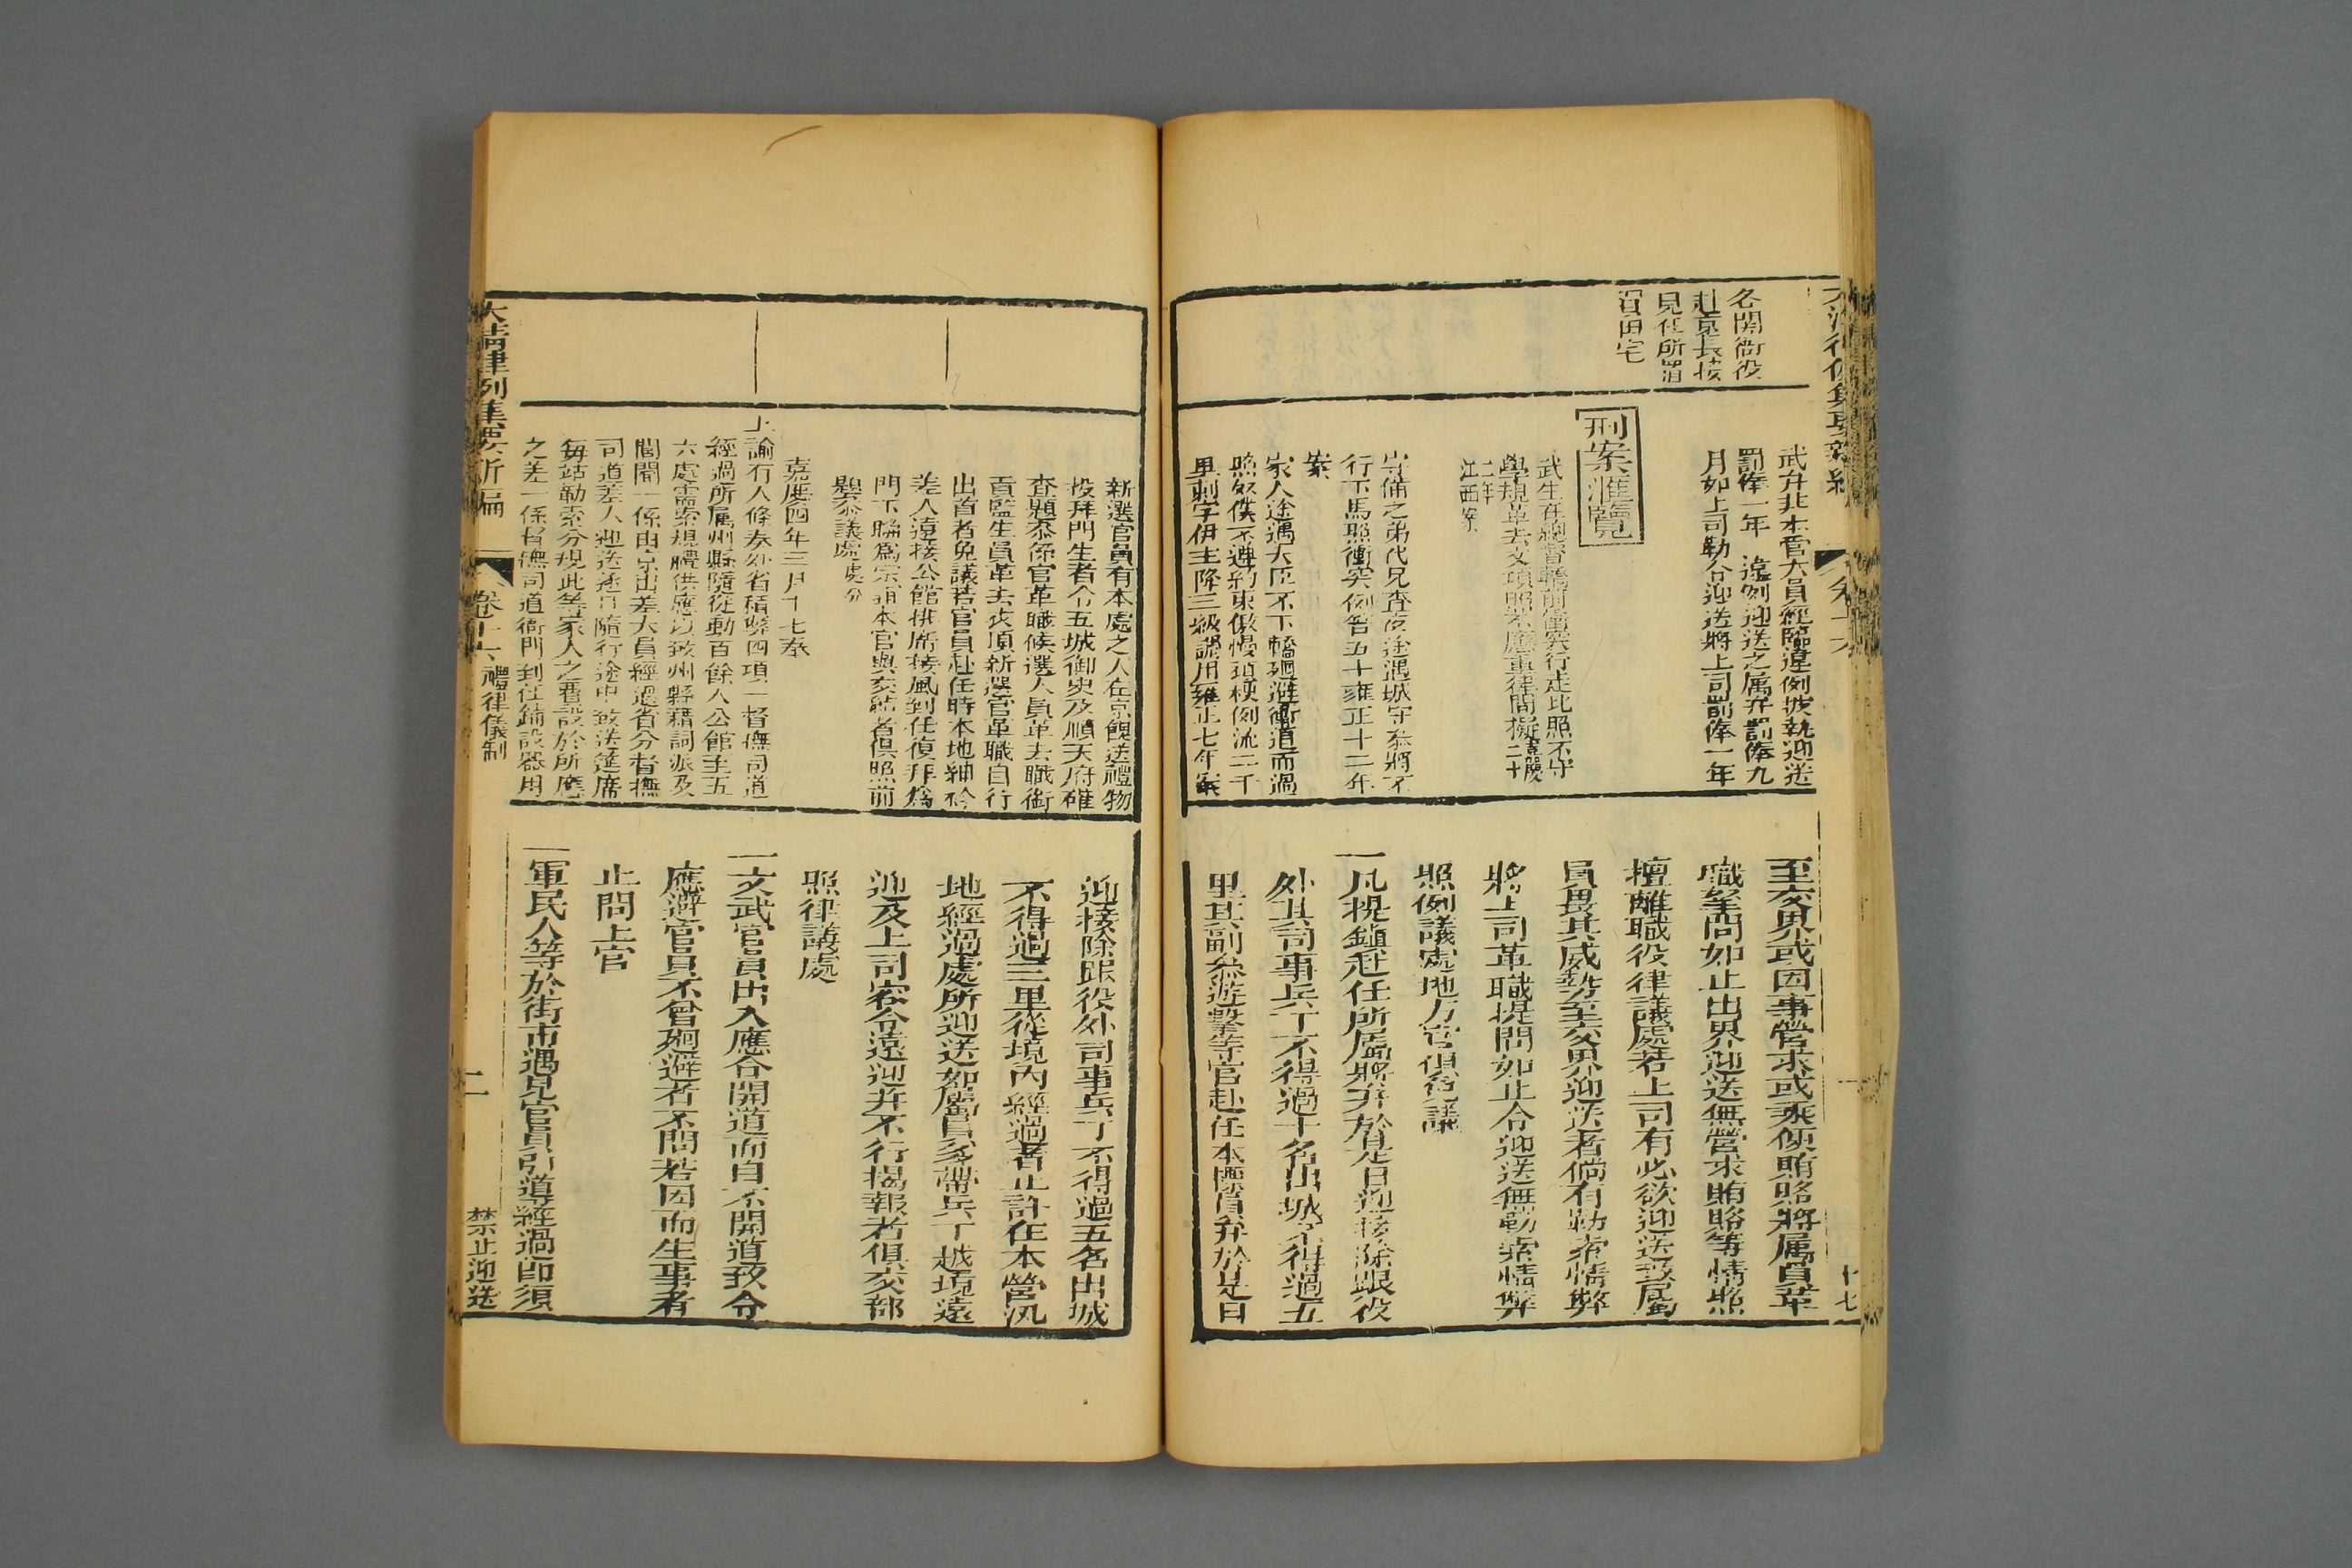 各関衙役
赴京長接
見任所置
買田宅
武弁非本管大員經臨違例披執迎送
罰俸一年　違例迎送之属弁罰俸九
月如上司勒令迎送將上司罰俸一年
刑案滙覽
武生在總督轎前衝突行走比照不守
學規革去文項照不應重律問擬嘉慶二十
二年
江西案
守備之弟代兄査夜途遇城守叅將不
行下馬照衝突例笞五十雍正十二年
案
家人途遇大臣不下轎廻避衝道而過
照奴僕不遵約束傲慢頑梗例流二千
里刺字伊主降三級調用雍正七年案
至交界或因事營求或乘便賄賂將属員革
職拏問如止出界迎送無營求賄賂等情照
擅離職役律議處若上司有必欲迎送致属
員畏其威勢至交界迎送者倘有勒索情弊
將上司革職提問如止令迎送無勒索情弊
照例議處地方官俱免議
一凡提鎮赴任所属將弁於是日迎接除跟役
外其司事兵丁不得過十名出城不得過五
里其副叅遊擊等官赴任本標員弁於是日
十七
新選官員有本處之人在京餽送禮物
投拜門生者令五城御史及順天府確
查題叅係官革職候選人員革去職銜
貢監生員革去衣頂新選官革職自行
出首者免議若官員赴任時本地紳衿
差人遠接公館排席接風到任後拜為
門下聯為宗誼本官與交結者俱照前
題叅議處處分
嘉慶四年三月十七奉
上諭有人條奏外省積弊四項一督撫司道
經過所属州縣隨從動百餘人公館至五
六處需索規禮供應以致州縣藉詞派及
閭閻一係由京出差大員經過省分督撫
司道差人迎送逐日隨行途中致送筵席
每站勒索分規此等家人之費設於所應
之差一係督撫司道衙門到任鋪設器用
迎接除跟役外司事兵丁不得過五名出城
不得過三里從境內經過者止許在本營汛
地經過處所迎送如屬員多帶兵丁越境遠
迎及上司容令遠迎幷不行揭報者俱交部
照律議處
一文武官員出入應合開道而自不開道致令
應避官員不曾廻避者不問若因而生事者
止問上官
一軍民人等於街市遇見官員引導經過即須
大清律例集要新編
卷十六
禮律儀制
二
禁止迎送